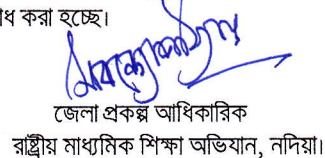 ধ করা হচ্ছে।
জেলা প্রকল্প আধিকারিক
রাষ্ট্রীয় মাধ্যমিক শিক্ষা অভিযান, নদিয়া।